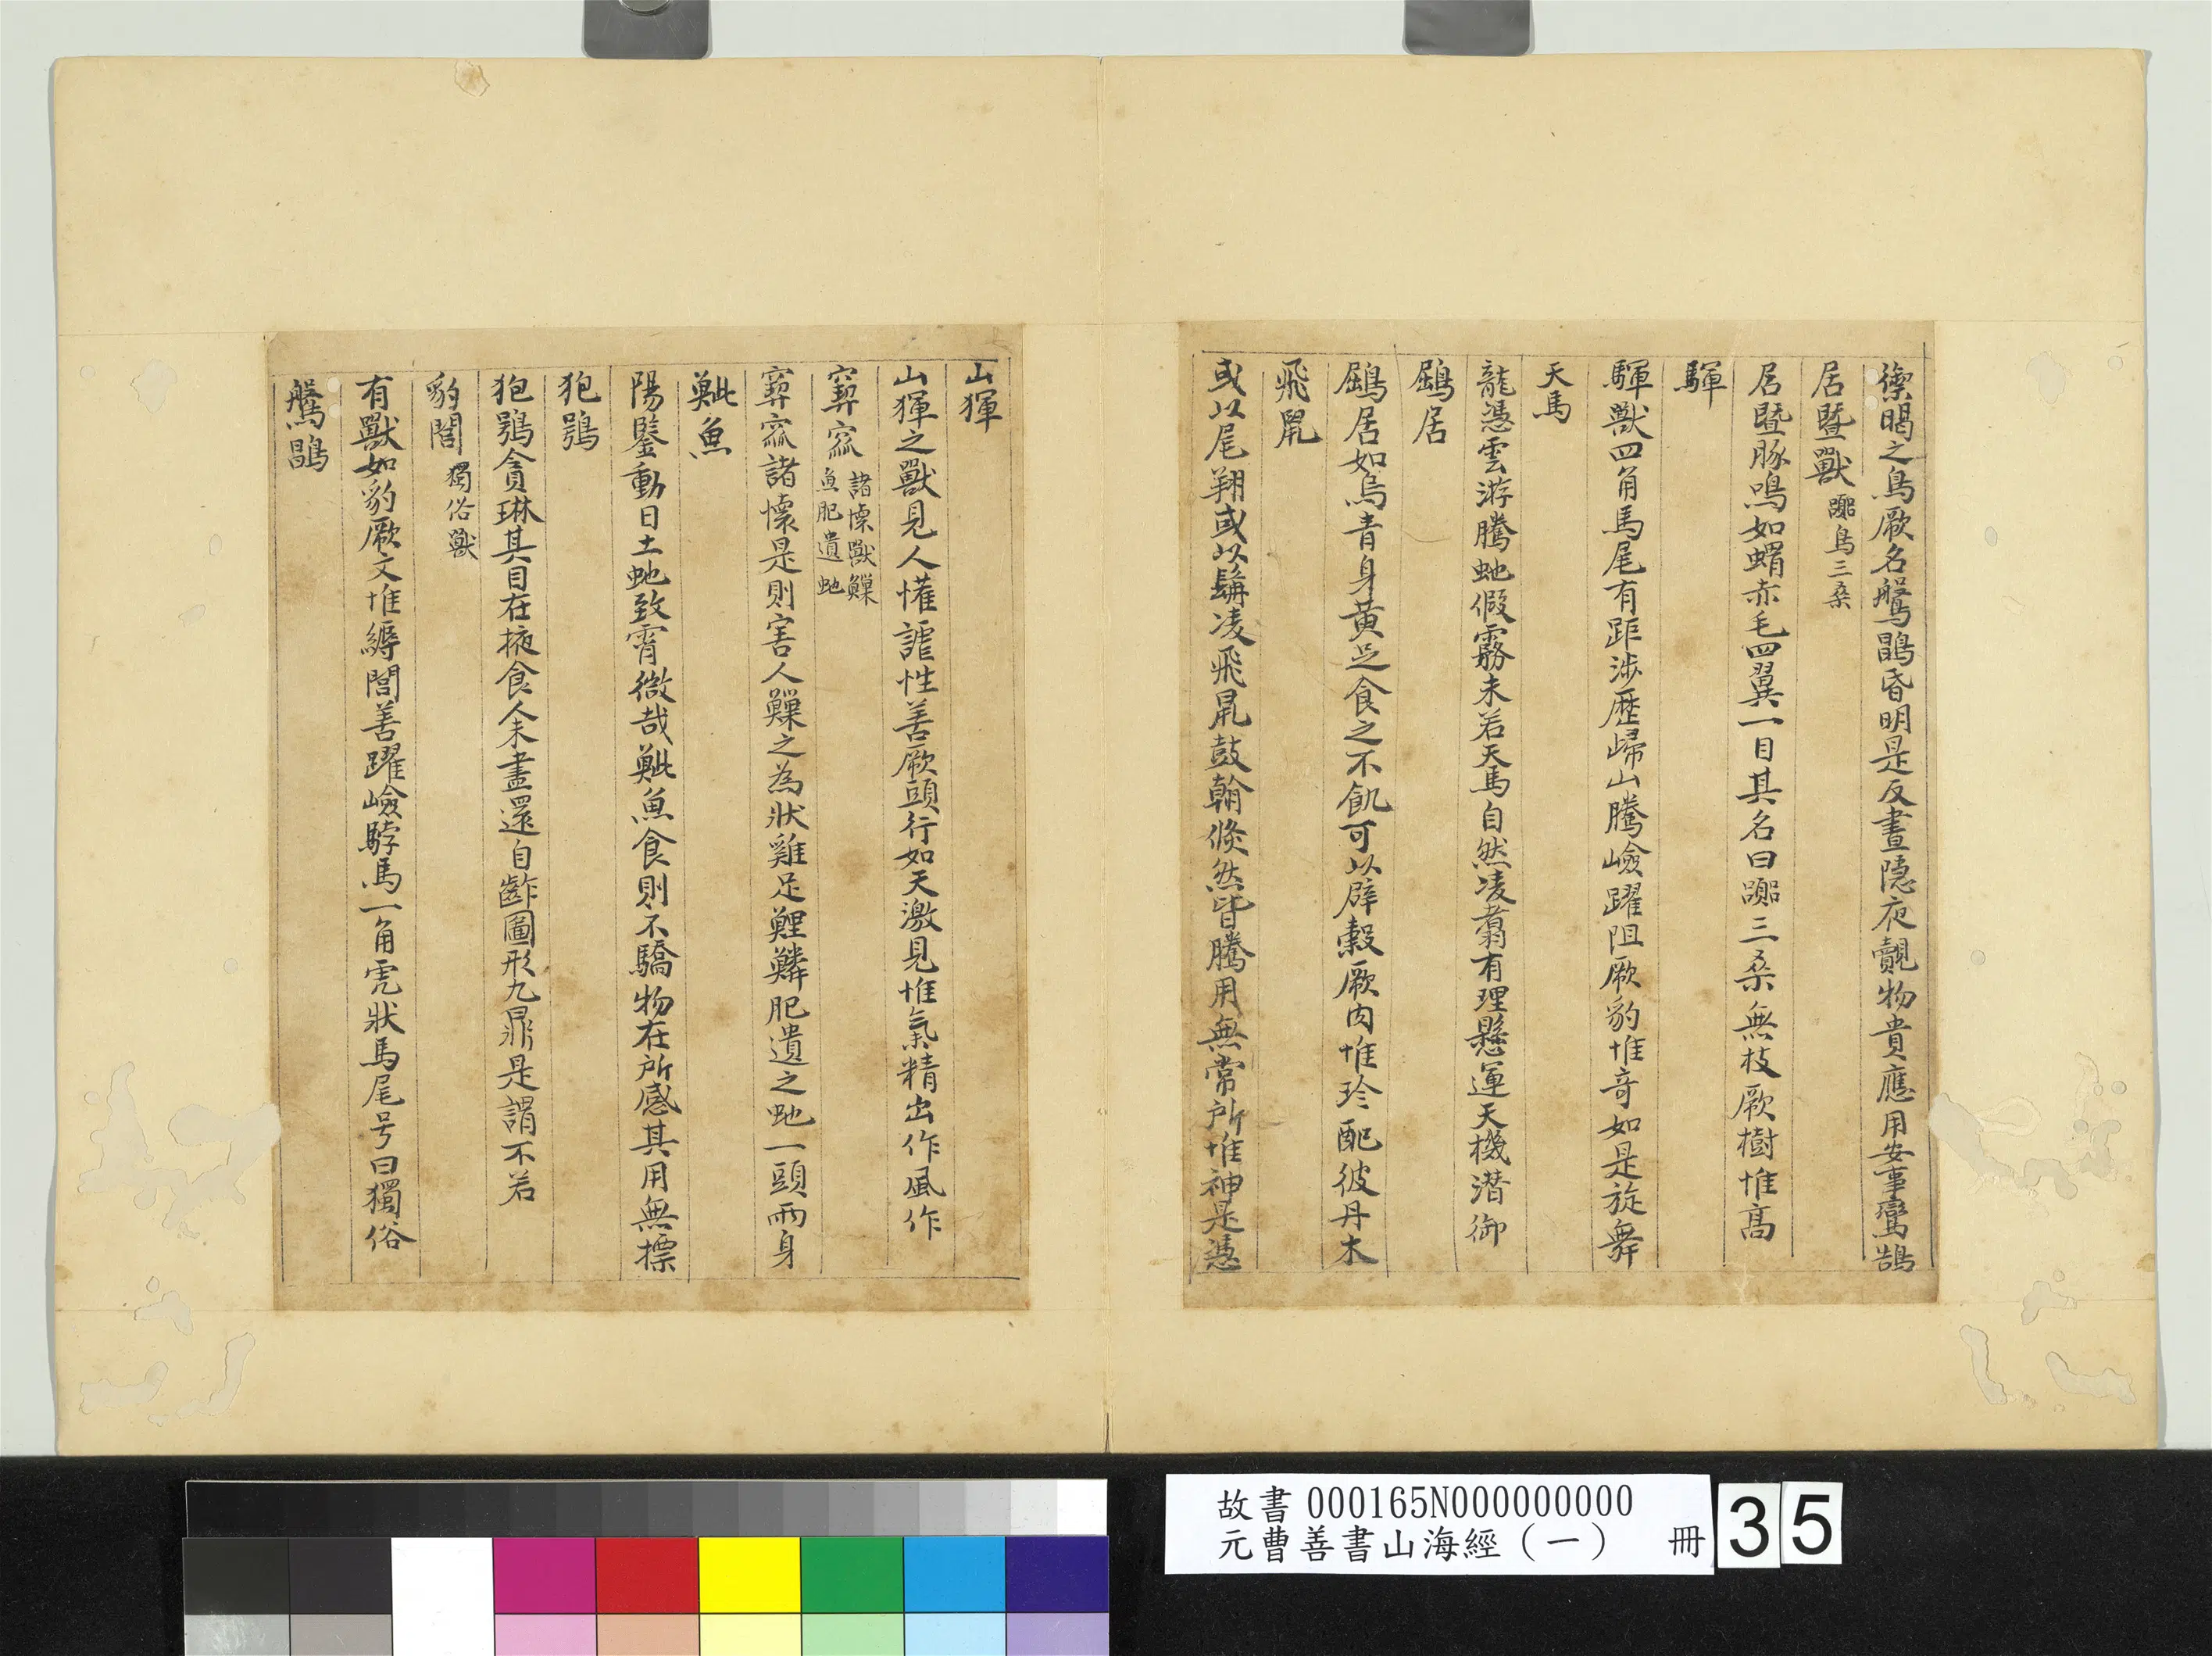 禦暍之鳥厥名鷔鶹昏明是反晝隱夜覿物貴應用安事鸞鵠
居暨獸 䟣鳥三桑
居暨豚鳴如蝟赤毛四翼一目其名曰䟣三桑無枝厥樹惟高
䮝
䮝獸四角馬尾有距涉歷歸山騰嶮躍阻厥豹惟奇如是旋舞
天馬
龍憑雲游騰虵假霧未若天馬自然凌翥有理懸運天機潛御
鶌居
鶌居如烏青身黃足食之不飢可以辟穀厥肉惟珍配彼丹木
飛鼠
或以尾翔或以髯凌飛鼠鼓翰倏然皆騰用無常所惟神是憑
山𤟤
山𤟤之獸見人懽謔性善厥頭行如天激見惟氣精出作風作
窫窳 諸懷獸鱳
魚肥遺虵
窫窳諸懷是則害人鱳之為狀雞足鯉鱗肥遺之虵一頭兩身
鮆魚
陽鑒動日土虵致宵微哉鮆魚食則不驕物在所感其用無摽
狍鴞
狍鴞貪琳其目在掖食人未盡還自齚圖形九鼎是謂不若
豹閭 獨俗獸
有獸如豹厥文惟縟閭善躍嶮䮀馬一角虎狀馬尾号曰獨俗
鷔鶹
故書 000165N000000000
元曹善書山海經（一） 冊 35